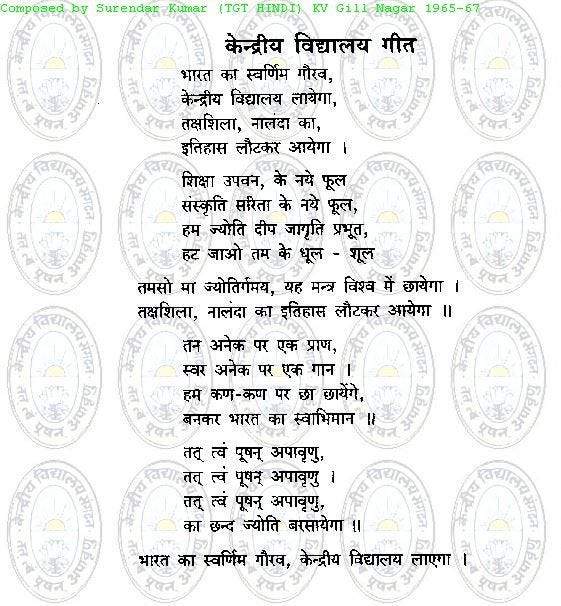 Composed by Surendar Kumar (TGT HINDI) KV Gill Nagar 1965-67
केन्द्रीय विद्यालय गीत
भारत का स्वर्णिम गौरव,
केन्द्रीय विद्यालय लायेगा,
तक्षशिला, नालंदा का,
इतिहास लौटकर आयेगा ।
शिक्षा उपवन, के नये फूल
संस्कृति सरिता के नये फूल,
हम ज्योति दीप जागृति प्रभूत,
हट जाओ तम के धूल - शूल
तमसो मा ज्योतिर्गमय, यह मन्त्र विश्व में छायेगा ।
तक्षशिला, नालंदा का इतिहास लौटकर आयेगा ॥
तन अनेक पर एक प्राण,
स्वर अनेक पर एक गान ।
हम कण-कण पर छा छायेंगे,
बनकर भारत का स्वाभिमान ॥
तत् त्वं पूषन् अपावृणु,
तत् त्वं पूषन् अपावृणु ।
तत् त्वं पूषन् अपावृणु,
का छन्द ज्योति बरसायेगा ॥
भारत का स्वर्णिम गौरव, केन्द्रीय विद्यालय लाएगा ।